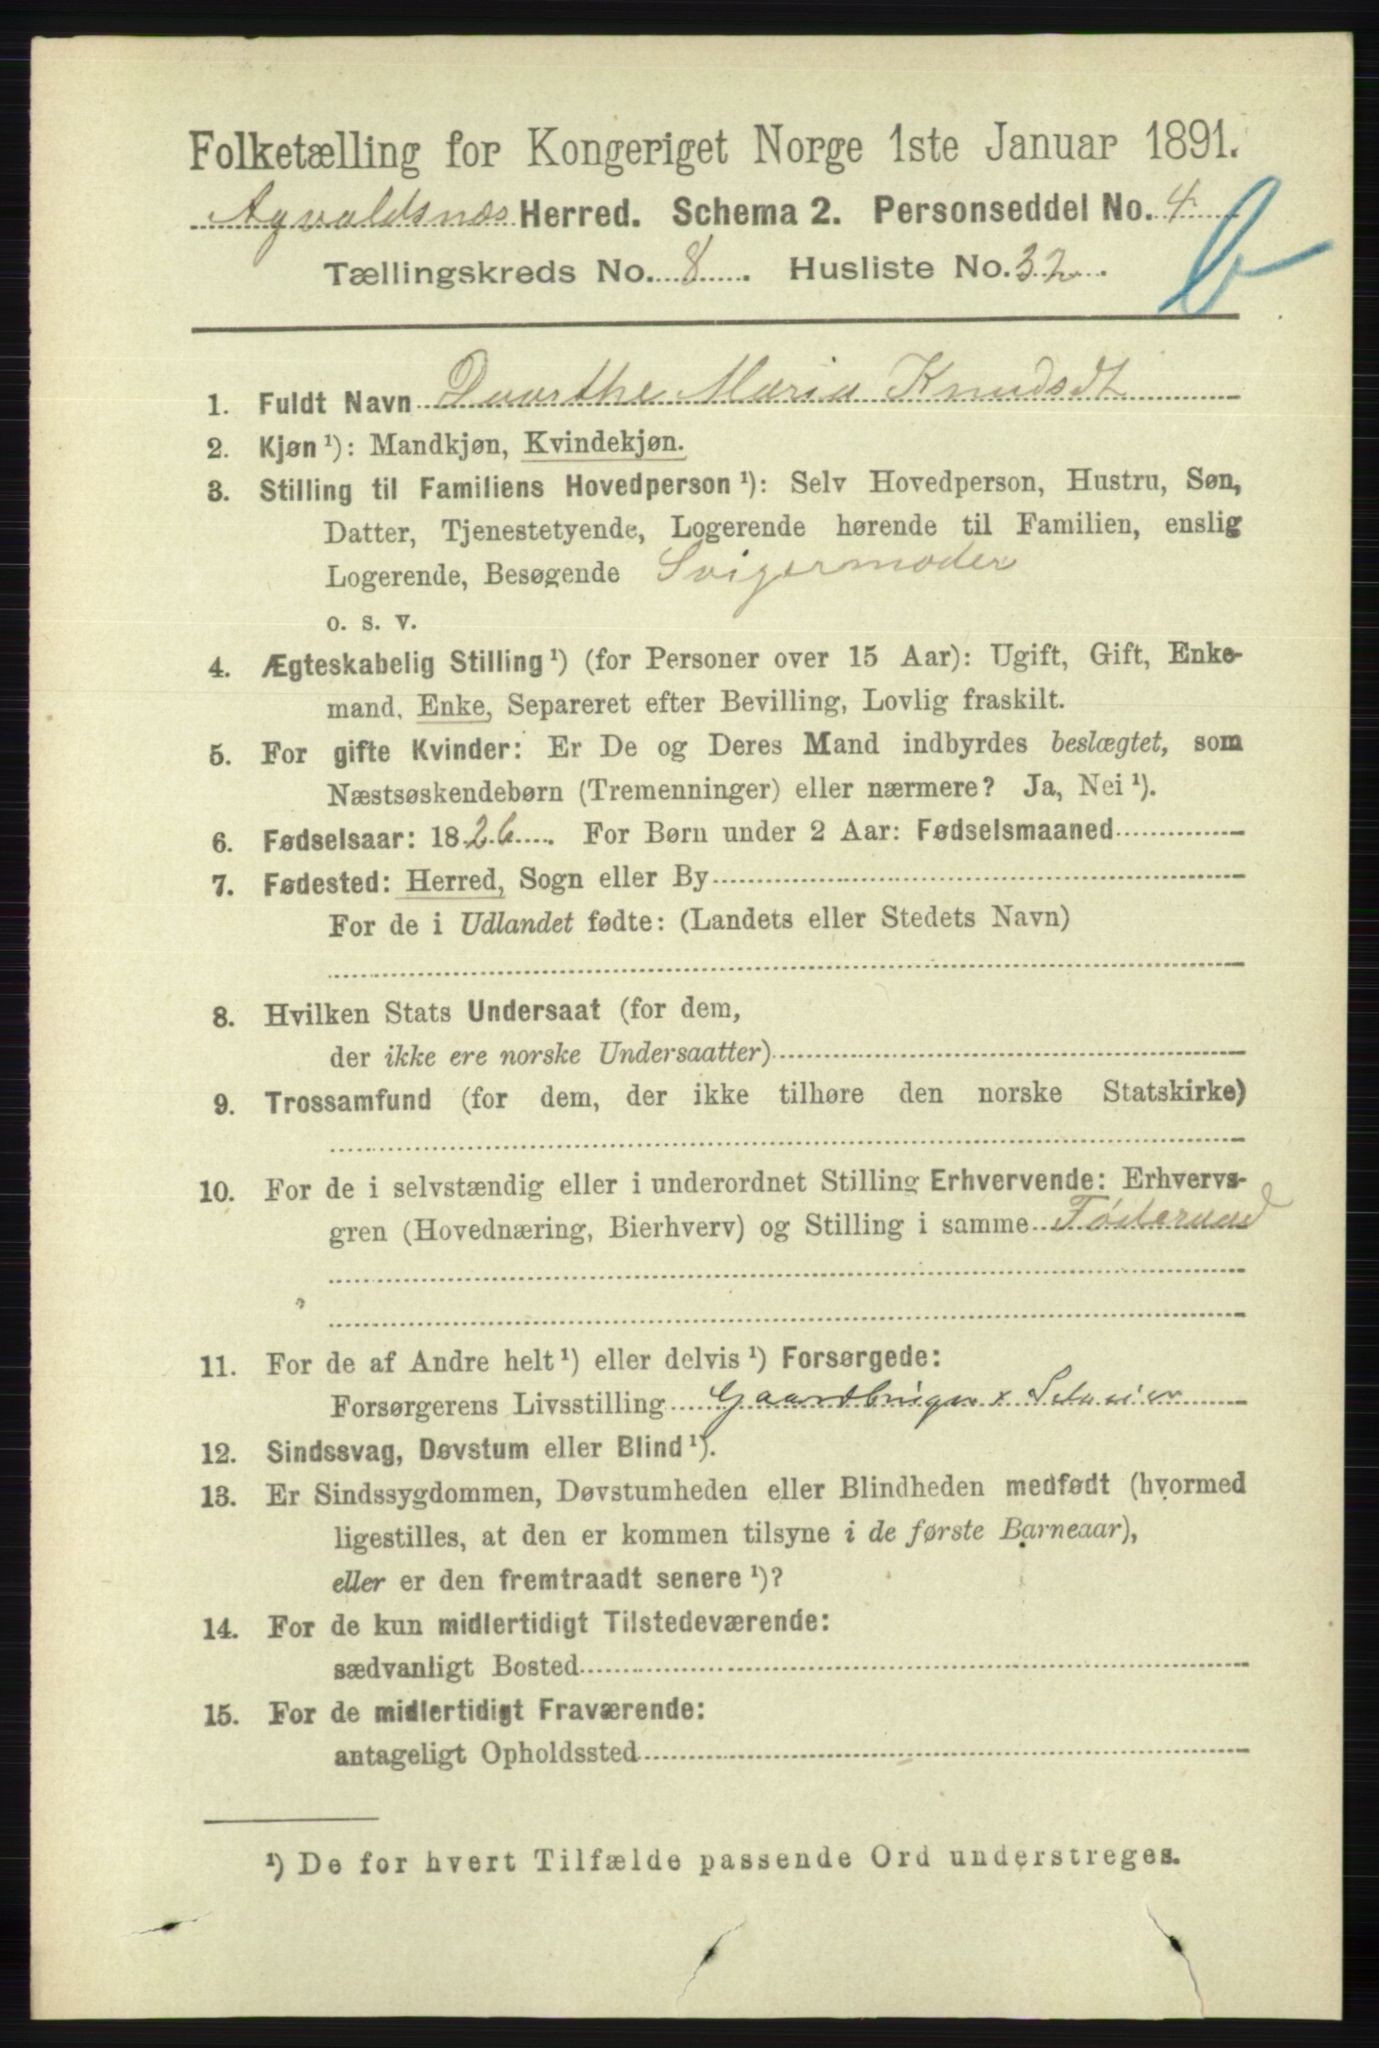 Folketælling for Kongeriget Norge 1ste Januar 1891.
Agvaldsnæs Herred. Schema 2. Personseddel No. 4
Tællingskreds No. 8. Husliste No. 32.
b
1. Fuldt Navn Doorthe Maria Knudsdt
2. Kjøn ¹): Mandkjøn, Kvindekjøn.
3. Stilling til Familiens Hovedperson ¹): Selv Hovedperson, Hustru, Søn,
Datter, Tjenestetyende, Logerende hørende til Familien, enslig
Logerende, Besøgende Svigermoder
o. s. v.
4. Ægteskabelig Stilling ¹) (for Personer over 15 Aar): Ugift, Gift, Enke-
mand, Enke, Separeret efter Bevilling, Lovlig fraskilt.
5. For gifte Kvinder: Er De og Deres Mand indbyrdes beslægtet, som
Næstsøskendebørn (Tremenninger) eller nærmere? Ja, Nei ¹).
6. Fødselsaar: 1826. For Børn under 2 Aar: Fødselsmaaned
7. Fødested: Herred, Sogn eller By
For de i Udlandet fødte: (Landets eller Stedets Navn)
8. Hvilken Stats Undersaat (for dem,
der ikke ere norske Undersaatter)
9. Trossamfund (for dem, der ikke tilhøre den norske Statskirke)
10. For de i selvstændig eller i underordnet Stilling Erhvervende: Erhvervs-
gren (Hovednæring, Bierhverv) og Stilling i samme Föderaad
11. For de af Andre helt ¹) eller delvis ¹) Forsørgede:
Forsørgerens Livsstilling Gaardbruger x Selveier
12. Sindssvag, Døvstum eller Blind ¹).
13. Er Sindssygdommen, Døvstumheden eller Blindheden medfødt (hvormed
ligestilles, at den er kommen tilsyne i de første Barneaar),
eller er den fremtraadt senere ¹)?
14. For de kun midlertidigt Tilstedeværende:
sædvanligt Bosted
15. For de midlertidigt Fraværende:
antageligt Opholdssted
¹) De for hvert Tilfælde passende Ord understreges.